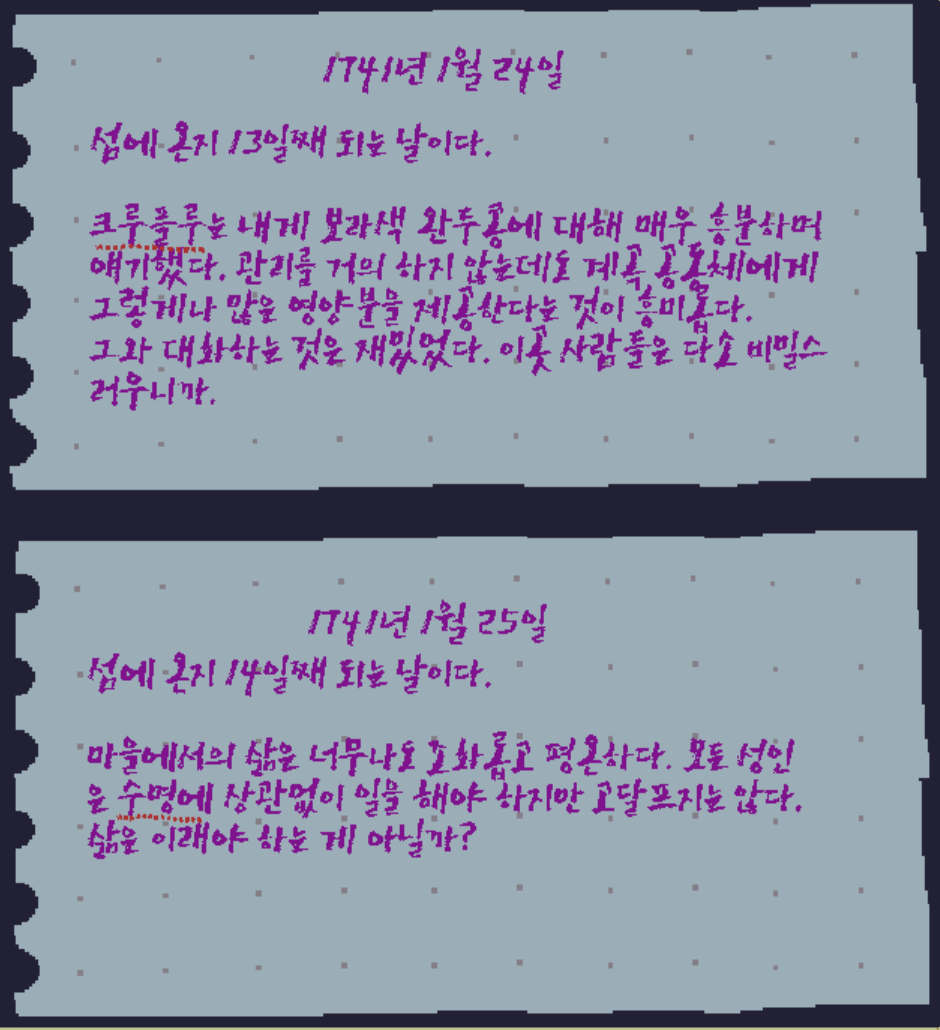 1741년 1월 24일
섬에 온지 13일째 되는 날이다.
크루플루는 내게 보라색 완두콩에 대해 매우 흥분하며
얘기했다. 관리를 거의 하지 않는데도 계곡 공동체에게
그렇게나 많은 영양분을 제공한다는 것이 흥미롭다.
그와 대화하는 것은 재밌었다. 이곳 사람들은 다소 비밀스
러우니까.
1741년 1월 25일
섬에 온지 14일째 되는 날이다.
마을에서의 삶은 너무나도 조화롭고 평온하다. 모든 성인
은 수명에 상관없이 일을 해야 하지만 고달프지는 않다.
삶은 이래야 하는 게 아닐까?